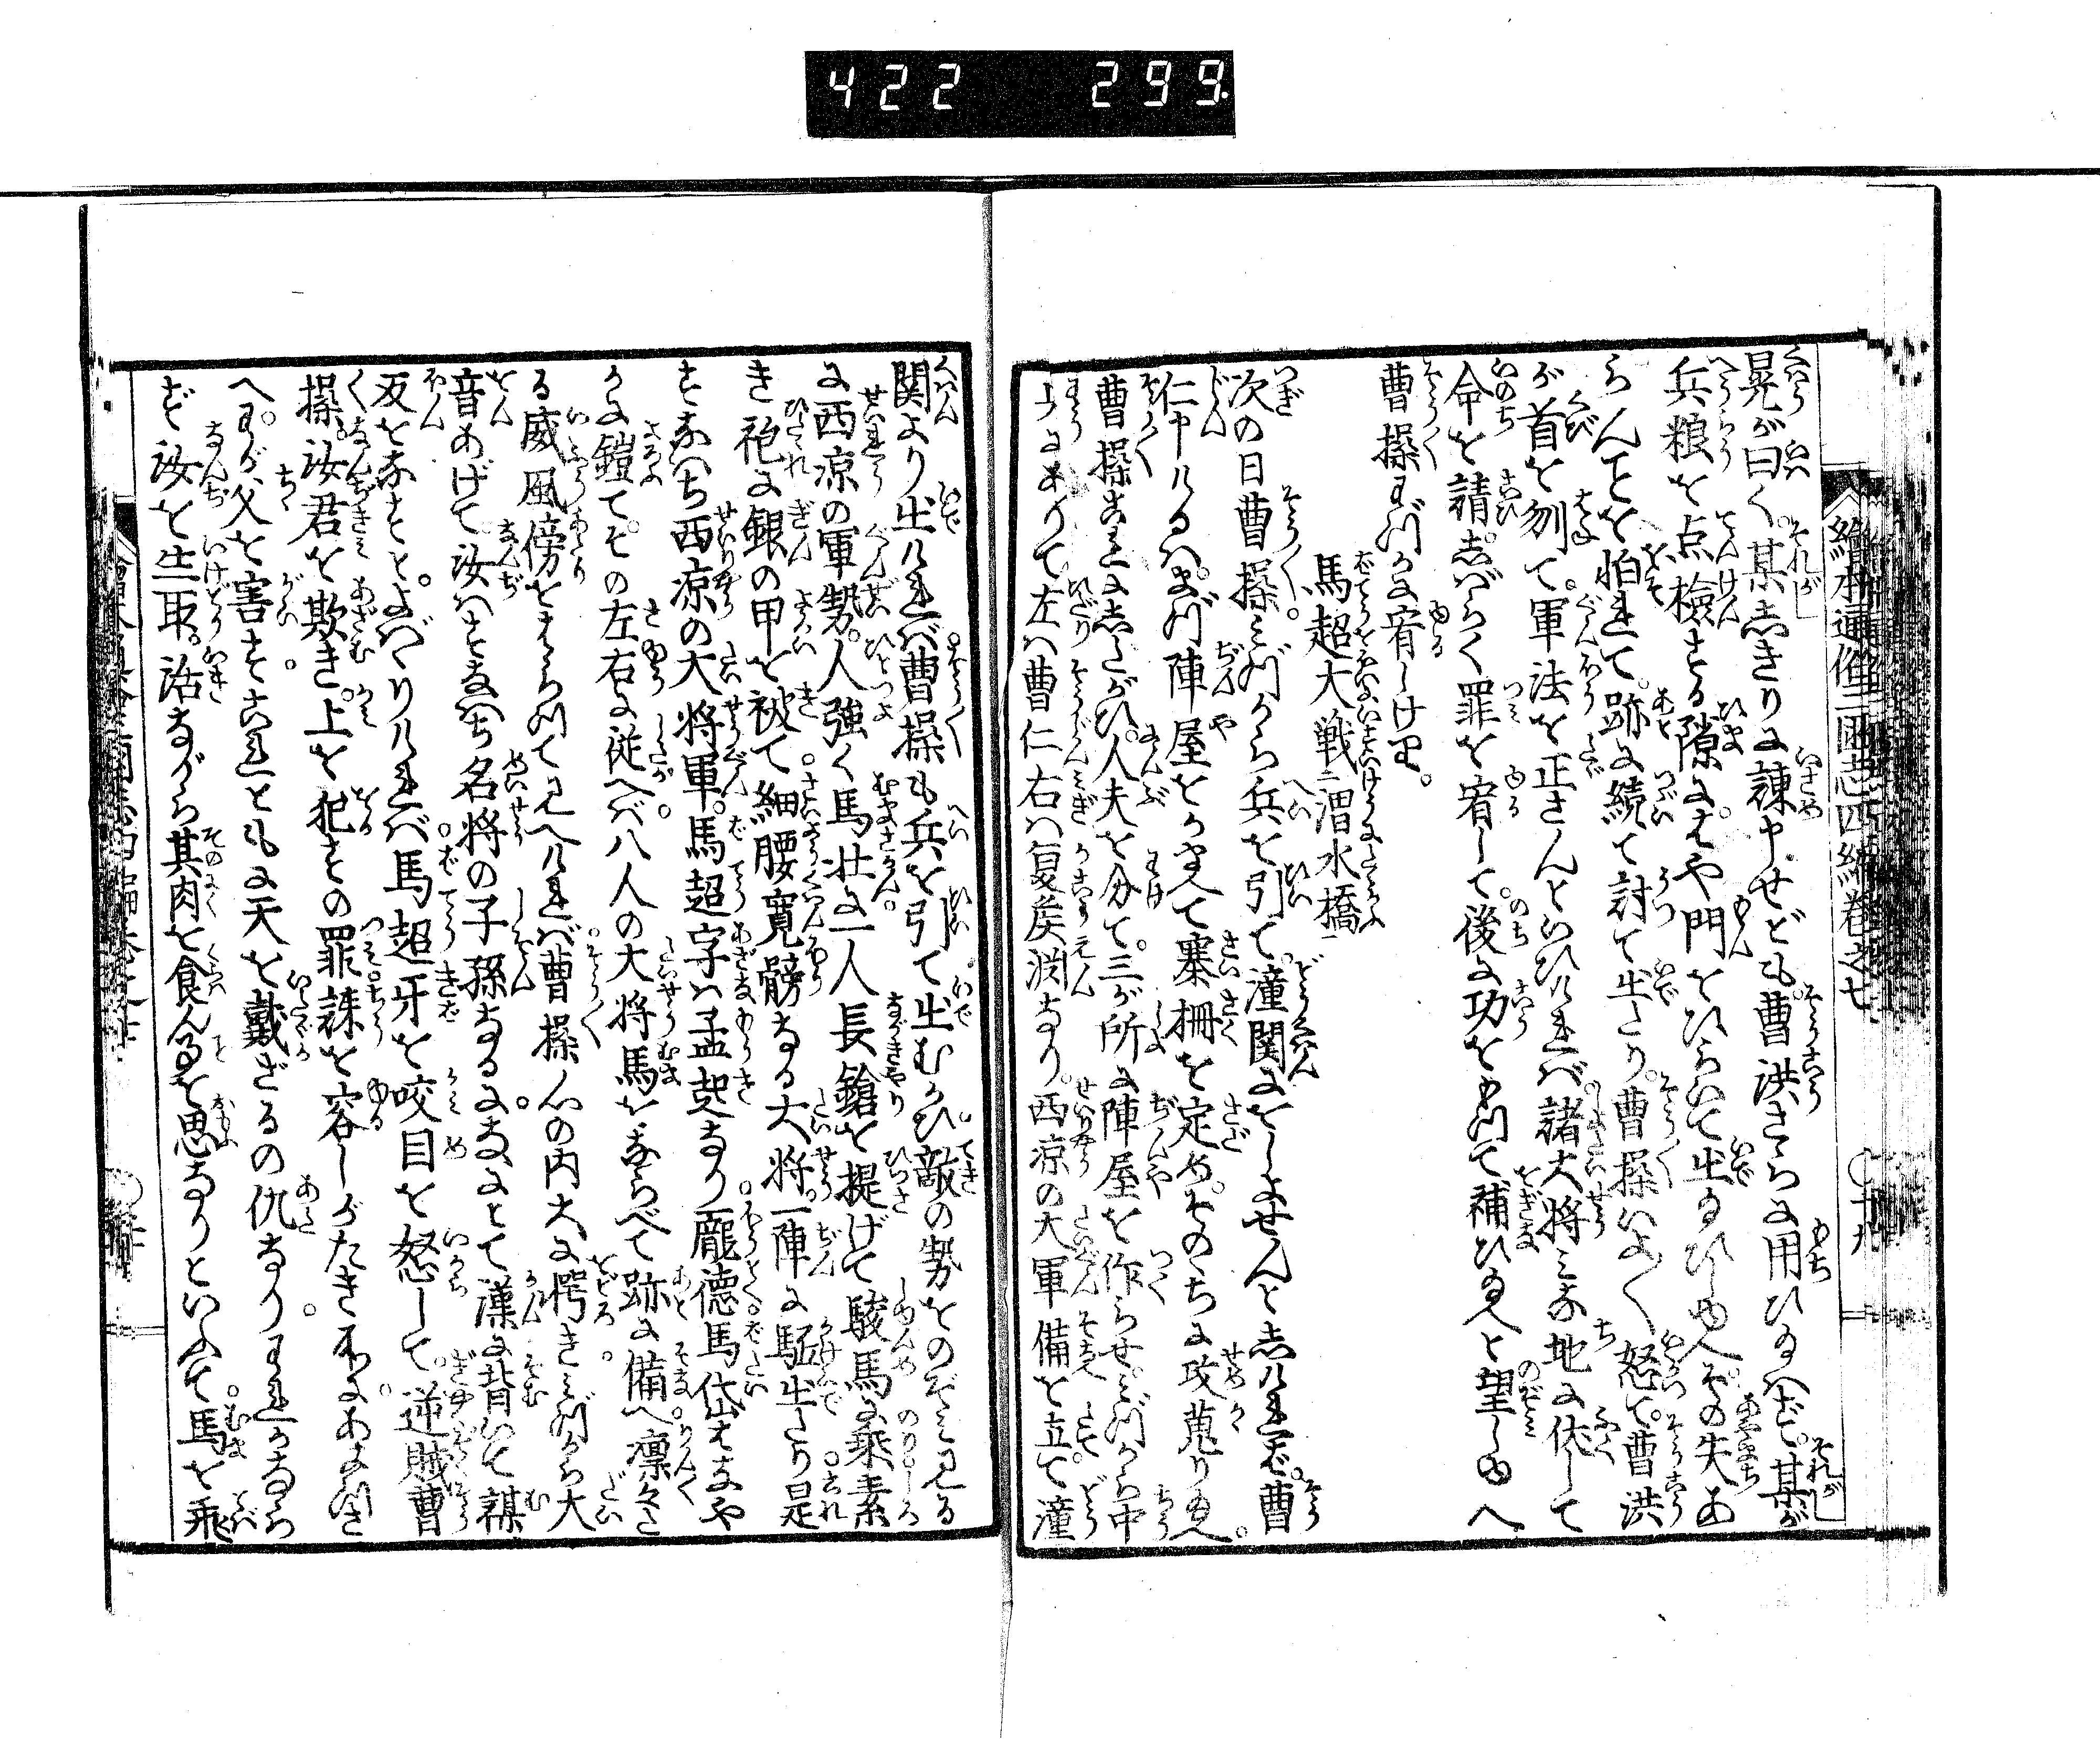 422 299.
繪本通俗三國志四編卷之七 ○十九
晃が曰く。某しきりに諌申せども。曹洪さらに用ひ給へず。某が
兵粮を点檢する隙に。はや門をひらいて出給ひしゆへ。その失あ
らんことを怕れて。跡に続て討て出たり。曹操いよ〳〵怒て。曹洪
が首を刎て。軍法を正さんといひければ。諸大将みな地に伏して
命を請。しばらく罪を宥して。後に功をもつて補ひ給へと望しゆへ
曹操わづかに宥しけり。
馬超大戦二渭水橋一
次の日曹操みづから兵を引て。潼関におしよせんとしければ。曹
仁申けるは。まづ陣屋をかまへて寨柵を定め。そのちに攻蒐り給へ。
曹操これにしたがひ。人夫を分て。三が所に陣屋を作らせ。みづから中
にありて左は曹仁右は夏侯淵なり。西涼の大軍備を立て。潼
関より出ければ。曹操も兵を引て出むかひ。敵の勢をのぞみ見る
に西涼の軍勢。人強く馬壮に一人長鎗を提げて駿馬に乘素
き袍に銀の甲を被て。細腰寛膀なる大将。一陣に駈出たり是
すなはち西涼の大将軍。馬超字は孟起なり。龐德馬岱はなや
かに鎧て。その左右に従へば。八人の大将馬をならべて跡に備へ凛々た
る威風傍をはらつて見へければ。曹操心の内大に愕き。みづから大
音あげて。汝はすなはち名将の子孫なるに。なにとて漢に背いて謀
反をなすと。よばゝりければ。馬超牙を咬目を怒して。逆賊曹
操。汝君を欺き。上を犯すの罪。誅を容しがたき所に。あまつさ
へ。わが父を害す。これともに天を戴ざるの仇なり。われかなら
ず汝を生取。活ながら其肉を食んことを思なりといふて。馬を乘